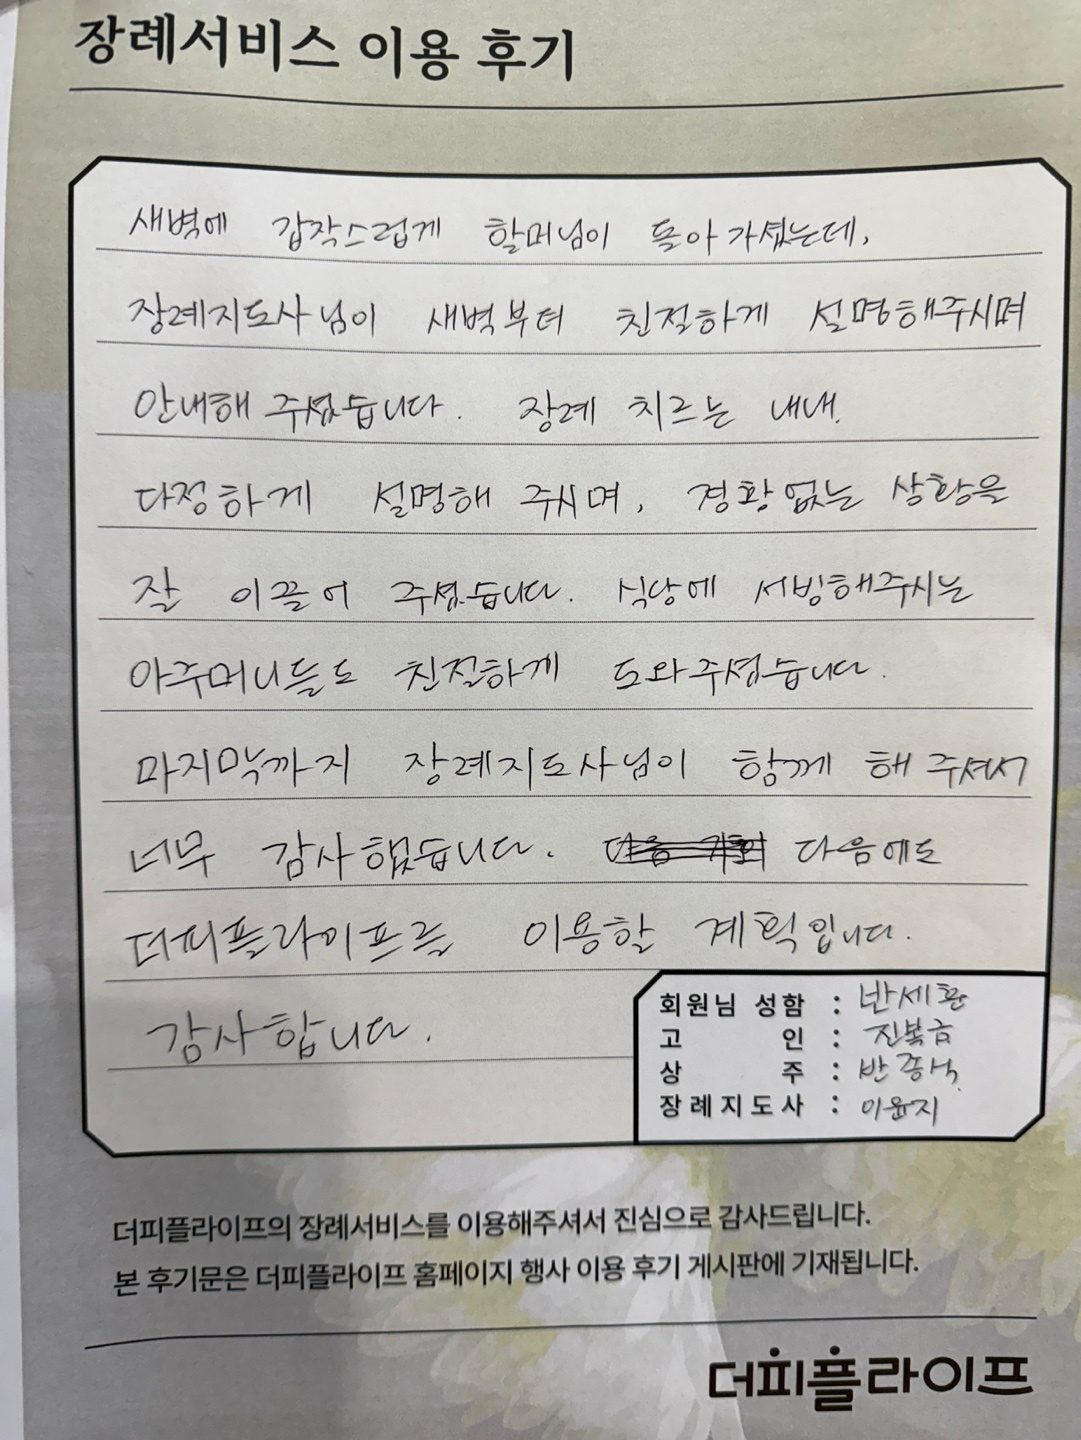 장례서비스 이용 후기
새벽에 갑작스럽게 할머님이 돌아가셨는데,
장례지도사님이 새벽부터 친절하게 설명해주시며
안내해 주셨습니다. 장례 치르는 내내
다정하게 설명해 주시며, 경황없는 상황을
잘 이끌어 주셨습니다. 식당에 서빙해주시는
아주머니들도 친절하게 도와주셨습니다.
마지막까지 장례지도사님이 함께 해 주셔서
너무 감사했습니다. 다음에도
더피플라이프를 이용할 계획입니다.
감사합니다.
회원님 성함 : 반세환
고 인 : 진복금
상 주 : 반종석
장례지도사 : 이윤지
더피플라이프의 장례서비스를 이용해주셔서 진심으로 감사드립니다.
본 후기문은 더피플라이프 홈페이지 행사 이용 후기 게시판에 기재됩니다.
더피플라이프